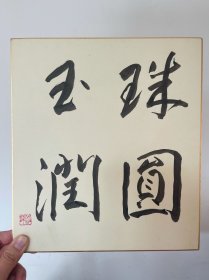 珠圓
玉潤